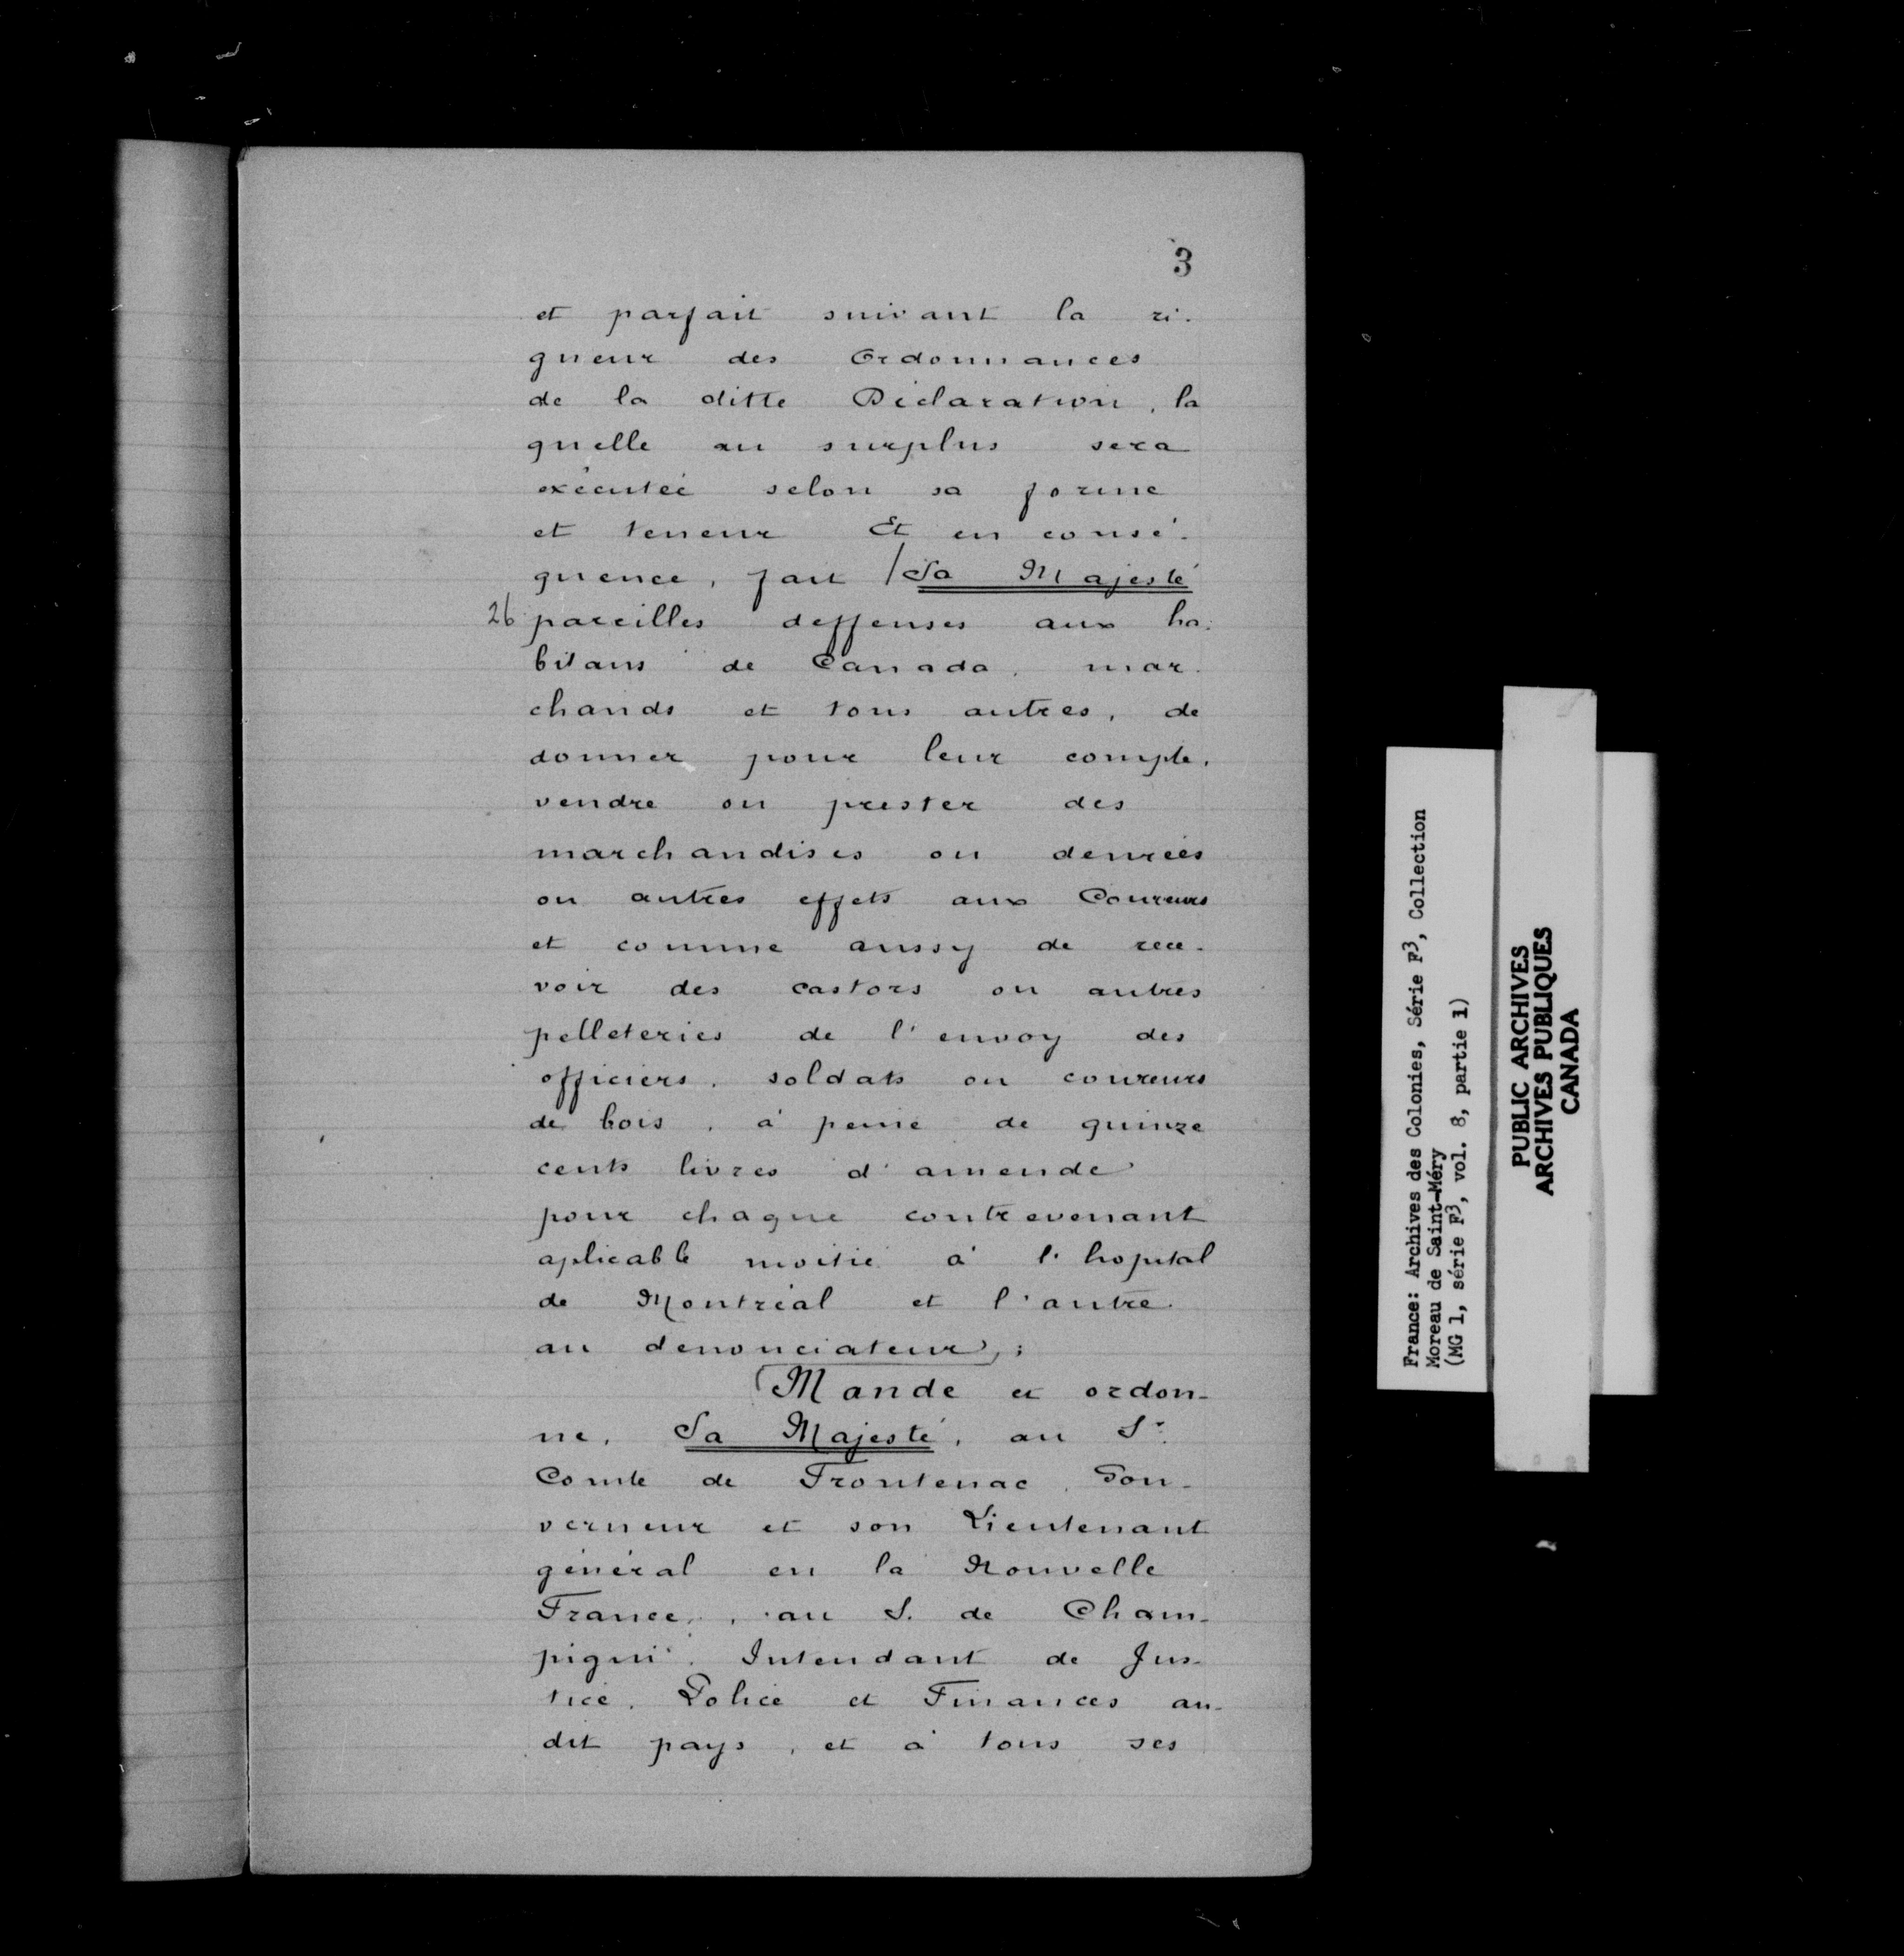 3
et parfait suivant la ri-
gueur des Ordonnances
de la ditte Déclaration, la
quelle au surplus sera
exécutée selon sa forme
et teneur Et en consé-
quence, fait / Sa Majesté
26 pareilles deffenses aux ha-
bitans de Canada, mar-
chands et tous autres, de
donner pour leur compte,
vendre ou prester des
marchandises ou denrées
ou autres effets aux Coureurs
et comme aussy de rece-
voir des castors ou autres
pelleteries de l'envoy des
officiers, soldats ou coureurs
de bois, à peine de quinze
cents livres d'amende
pour chaque contrevenant
aplicable moitié à l'hopital
de Montréal et l'autre
au denonciateur;
Mande et ordon-
ne, Sa Majesté, au Sr.
Comte de Frontenac, Gou-
verneur et son Lieutenant
général en la Nouvelle
France, au S. de Cham-
pigni, Intendant de Jus-
tice, Police et Finances au-
dit pays, et à tous ses
France: Archives des Colonies, Série F3, Collection
Moreau de Saint-Méry
(MG 1, série F3, vol. 8, partie 1)
PUBLIC ARCHIVES
ARCHIVES PUBLIQUES
CANADA